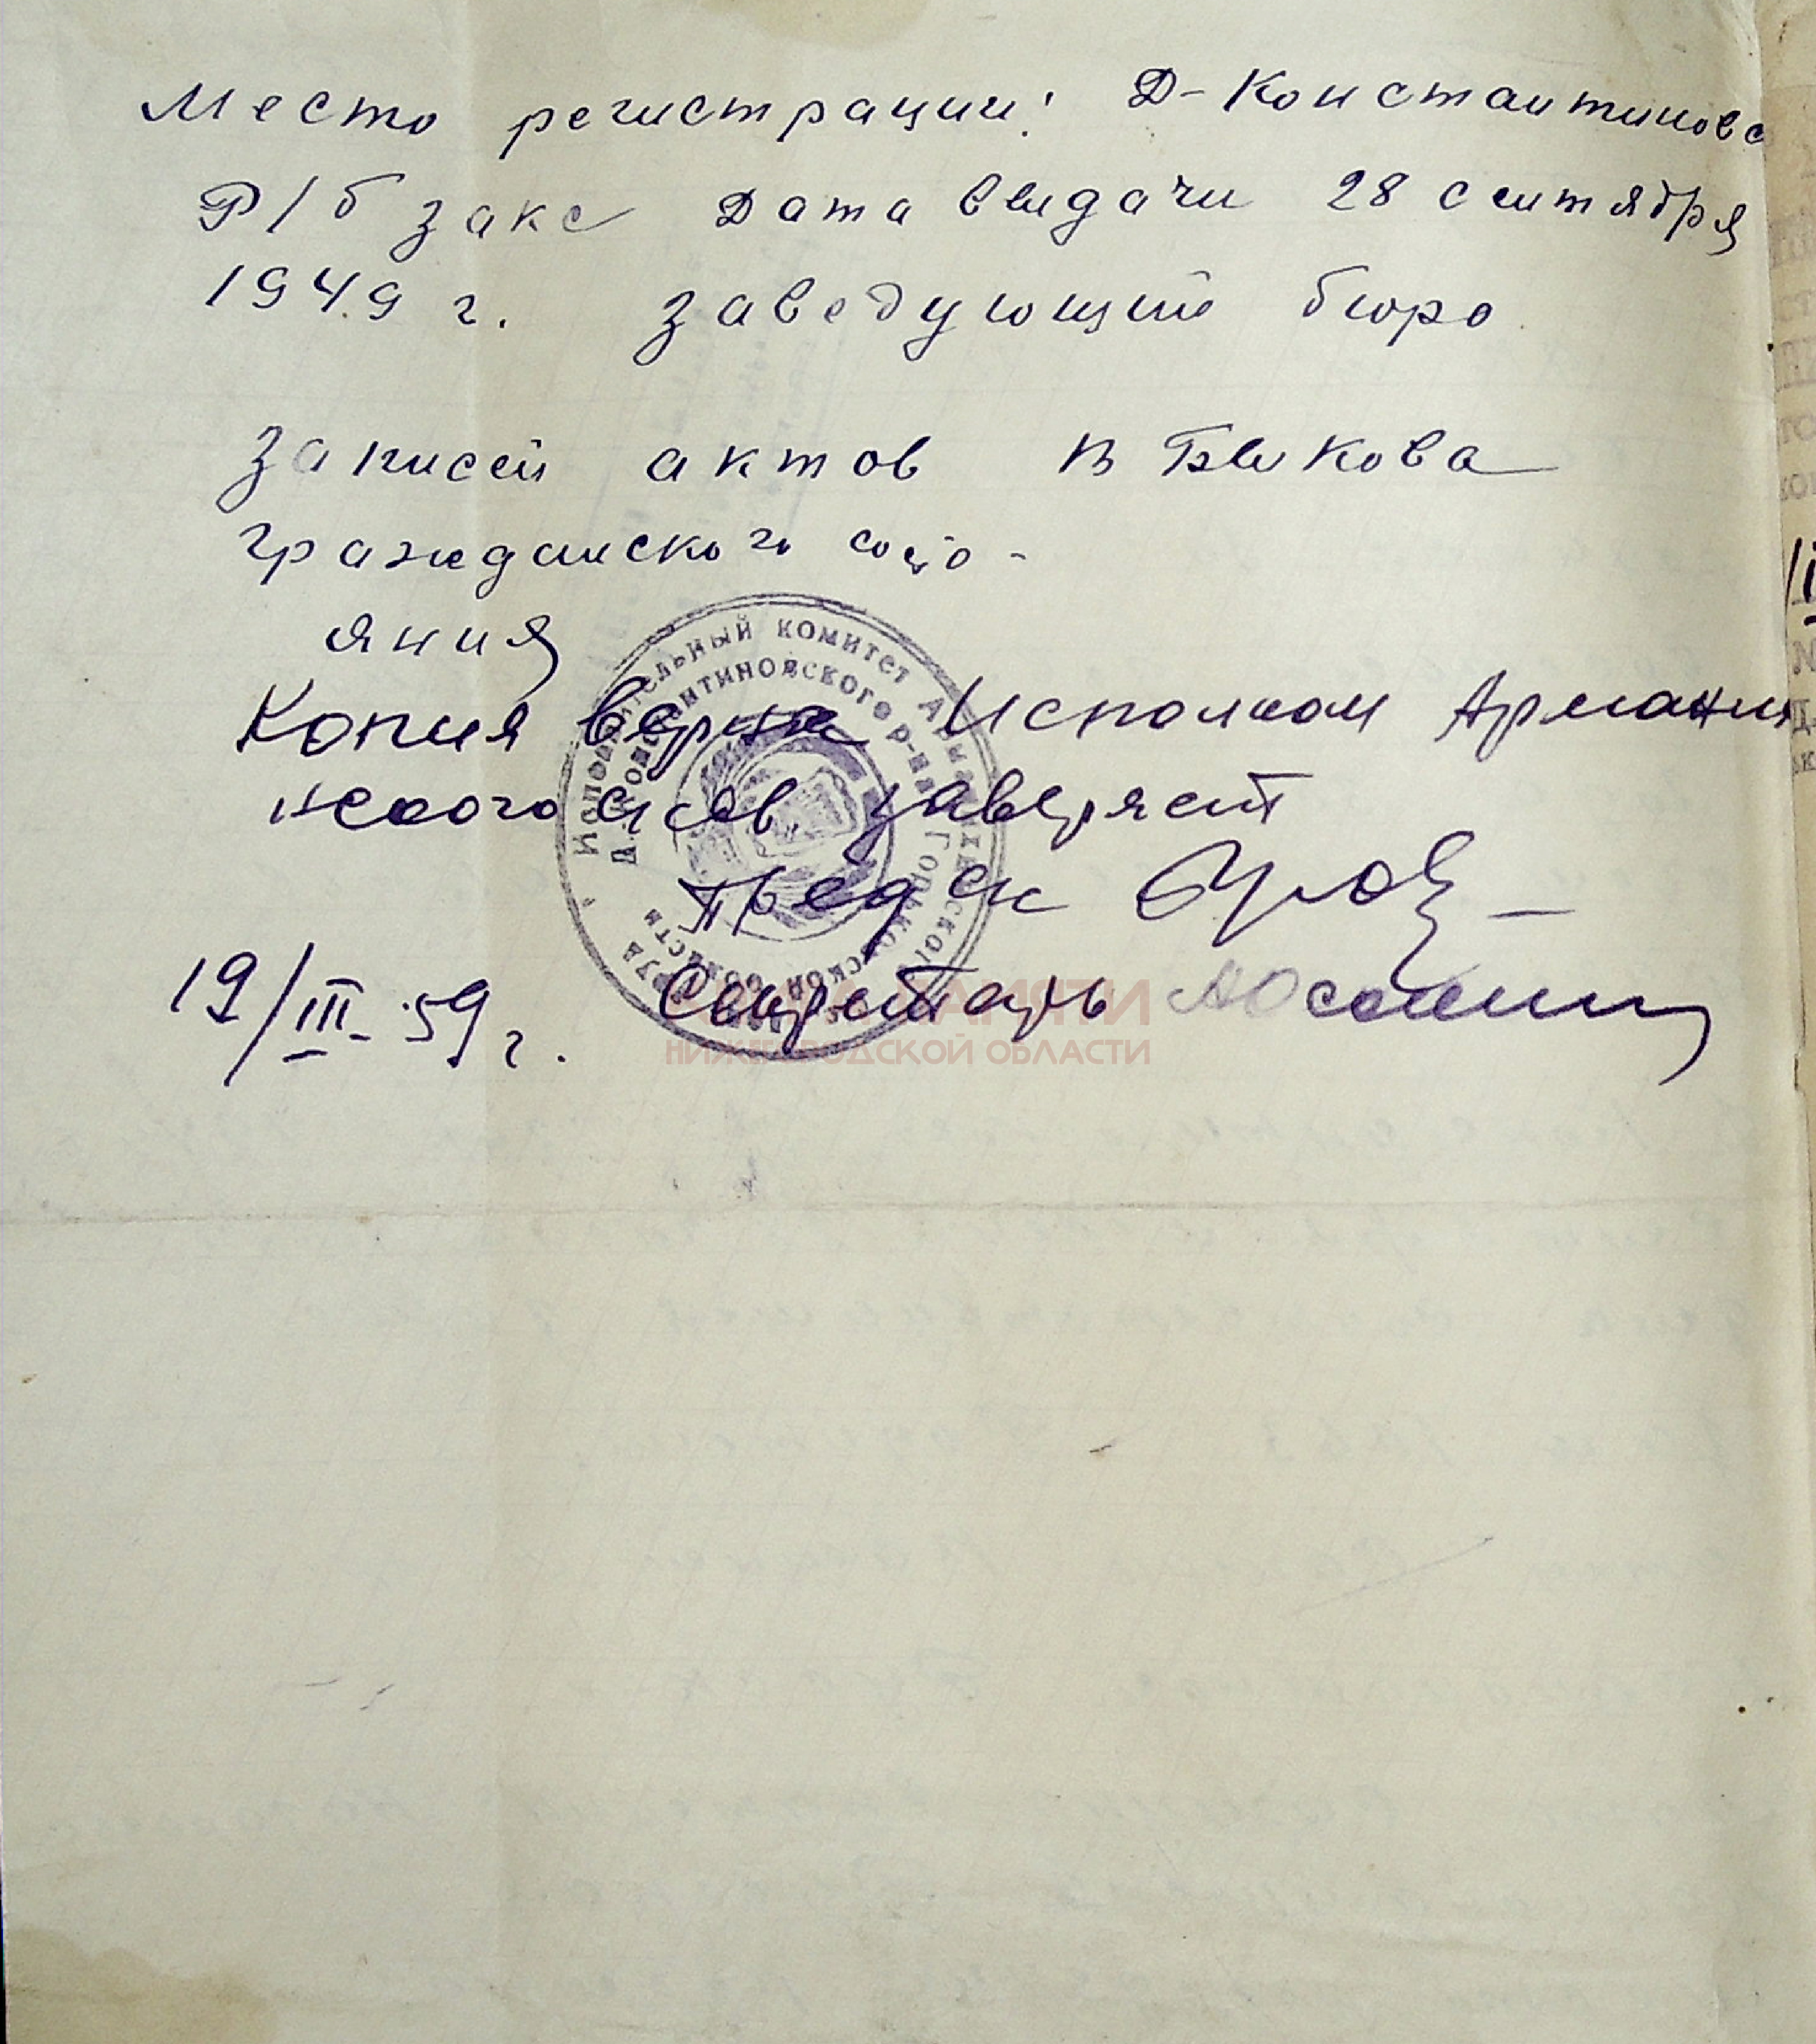 Место регистрации: Д-Константиновс
Р/б загс Дата выдачи 28 сентября
1949 г. заведующий бюро
записей актов В Быкова
гражданского состо-
яния
Копия верна Исполком Арманих
ского с/сов. заверяет
Пред ск
19/III-59 г. Секретарь
Исполнительный комитет Арманихинского
Д.-Константиновского р-на Горьковской области
ПАМЯТИ
НИЖЕГОРОДСКОЙ ОБЛАСТИ